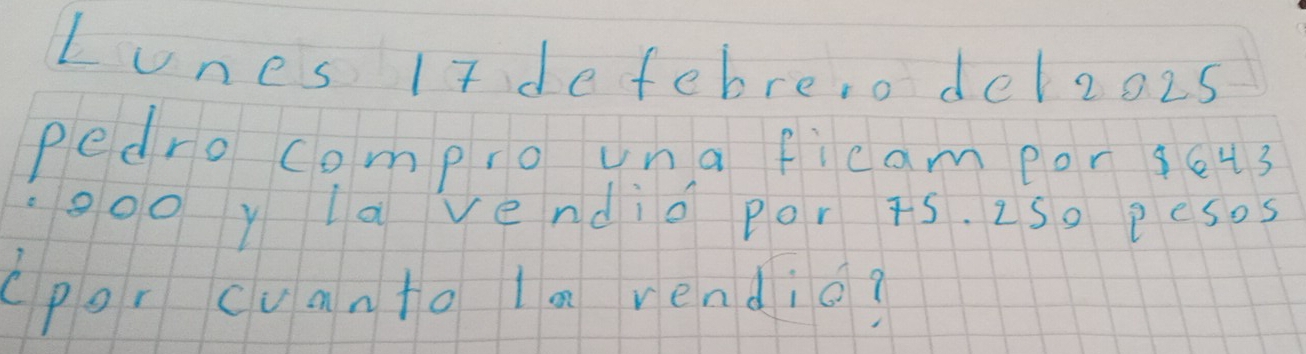 Lunes 17 de febrero del 2025
pedro compro una ficam por $643
.000 y la vendió por 75.250 pesos
¿por cuanto la vendió?